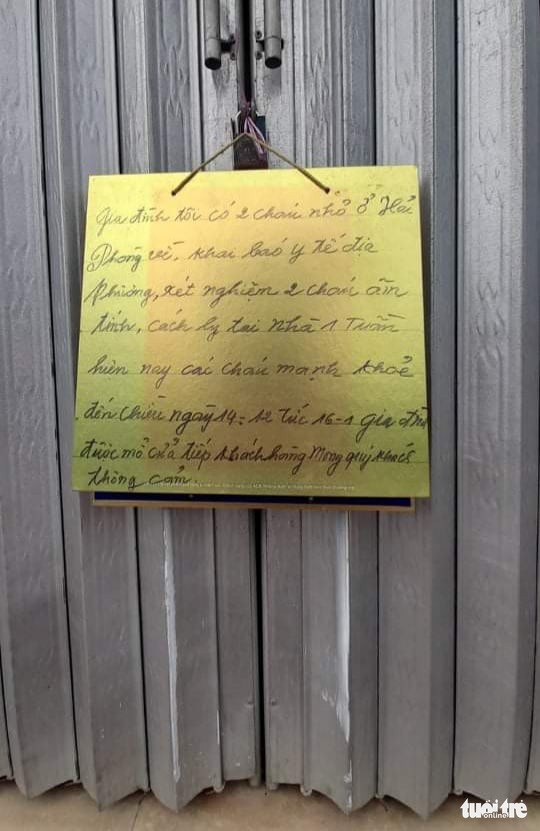 Gia đình tôi có 2 cháu nhỏ ở Hải
Phòng về, khai báo y tế địa
phương, xét nghiệm 2 cháu âm
tính, cách ly tại nhà 1 Tuần
hiện nay các cháu mạnh khoẻ
đến chiều ngày 14-12 tức 16-1 gia đình
được mở cửa tiếp khách hàng Mong quý khách
thông cảm.
tuổi trẻ
online